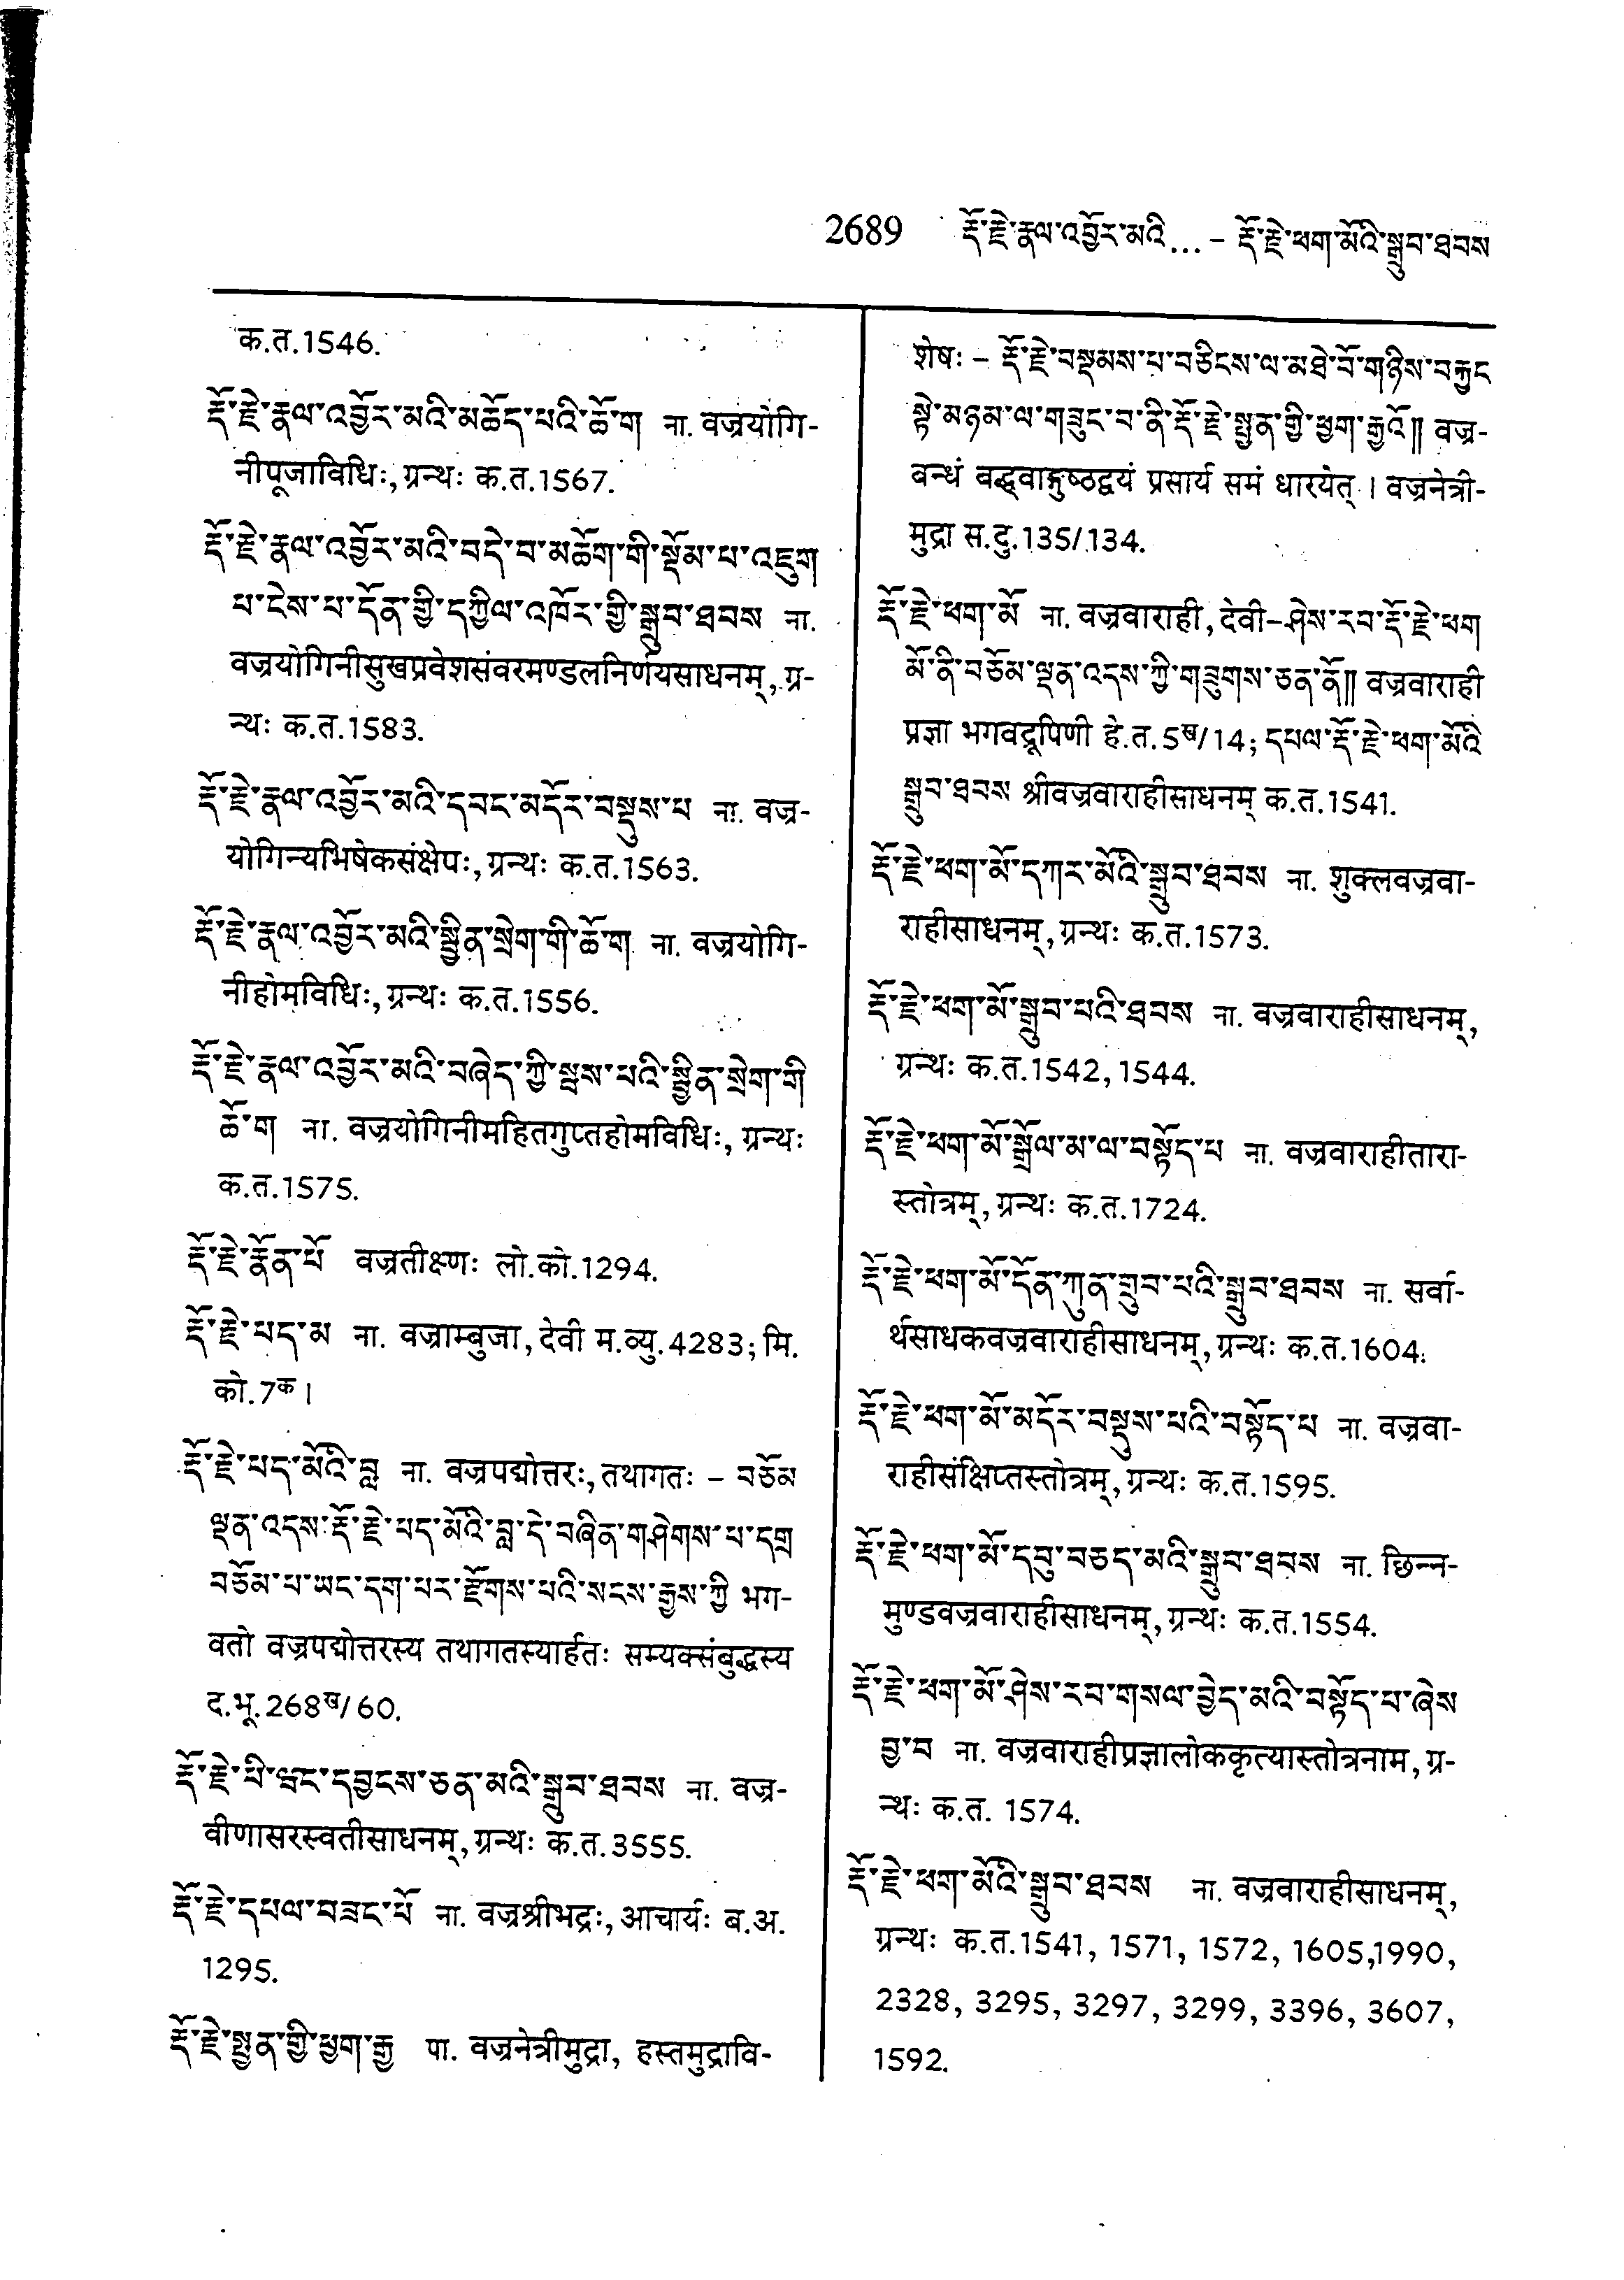 2689 རྡོ་རྗེ་རྣལ་འབྱོར་མའི... – རྡོ་རྗེ་ཕག་མོའི་སྒྲུབ་ཐབས
क.त.1546.
རྡོ་རྗེ་རྣལ་འབྱོར་མའི་མཆོད་པའི་ཆོ་ག ना. वज्रयोगि-
नीपूजाविधिः, ग्रन्थः क.त.1567.
རྡོ་རྗེ་རྣལ་འབྱོར་མའི་བདེ་བ་མཆོག་གི་སྡོམ་པ་འཇུག
པ་ངེས་པ་དོན་གྱི་དཀྱིལ་འཁོར་གྱི་སྒྲུབ་ཐབས ना.
वज्रयोगिनीसुखप्रवेशसंवरमण्डलनिर्णयसाधनम्, ग्र-
न्थः क.त.1583.
རྡོ་རྗེ་རྣལ་འབྱོར་མའི་དབང་མདོར་བསྡུས་པ ना. वज्र-
योगिन्यभिषेकसंक्षेपः, ग्रन्थः क.त.1563.
རྡོ་རྗེ་རྣལ་འབྱོར་མའི་སྦྱིན་སྲེག་གི་ཆོ་ག ना. वज्रयोगि-
नीहोमविधिः, ग्रन्थः क.त.1556.
རྡོ་རྗེ་རྣལ་འབྱོར་མའི་བཞེད་ཀྱི་སྦས་པའི་སྦྱིན་སྲེག་གི
ཆོ་ག ना. वज्रयोगिनीमहितगुप्तहोमविधिः, ग्रन्थः
क.त.1575.
རྡོ་རྗེ་རྣོན་པོ वज्रतीक्ष्णः लो.को.1294.
རྡོ་རྗེ་པད་མ ना. वज्राम्बुजा, देवी म.व्यु.4283; मि.
को.7क।
རྡོ་རྗེ་པད་མོའི་བླ ना. वज्रपद्मोत्तरः, तथागतः – བཅོམ
ལྡན་འདས་རྡོ་རྗེ་པད་མོའི་བླ་དེ་བཞིན་གཤེགས་པ་དགྲ
བཅོམ་པ་ཡང་དག་པར་རྫོགས་པའི་སངས་རྒྱས་ཀྱི भग-
वतो वज्रपद्मोत्तरस्य तथागतस्यार्हतः सम्यक्संबुद्धस्य
द.भू.268ख/60.
རྡོ་རྗེ་པི་ཝང་དབྱངས་ཅན་མའི་སྒྲུབ་ཐབས ना. वज्र-
वीणासरस्वतीसाधनम्, ग्रन्थः क.त.3555.
རྡོ་རྗེ་དཔལ་བཟང་པོ ना. वज्रश्रीभद्रः, आचार्यः ब.अ.
1295.
རྡོ་རྗེ་སྤྱན་གྱི་ཕྱག་རྒྱ पा. वज्रनेत्रीमुद्रा, हस्तमुद्रावि-
शेषः – རྡོ་རྗེ་བསྡམས་པ་བཅིངས་ལ་མཐེ་བོ་གཉིས་བརྐྱང
སྟེ་མཉམ་ལ་གཟུང་བ་ནི་རྡོ་རྗེ་སྤྱན་གྱི་ཕྱག་རྒྱའོ།། वज्र-
बन्धं बद्ध्वाङ्गुष्ठद्वयं प्रसार्य समं धारयेत् । वज्रनेत्री-
मुद्रा स.दु.135/134.
རྡོ་རྗེ་ཕག་མོ ना. वज्रवाराही, देवी–ཤེས་རབ་རྡོ་རྗེ་ཕག
མོ་ནི་བཅོམ་ལྡན་འདས་ཀྱི་གཟུགས་ཅན་ནོ།། वज्रवाराही
प्रज्ञा भगवद्रूपिणी हे.त.5ख/14; དཔལ་རྡོ་རྗེ་ཕག་མོའི
སྒྲུབ་ཐབས श्रीवज्रवाराहीसाधनम् क.त.1541.
རྡོ་རྗེ་ཕག་མོ་དཀར་མོའི་སྒྲུབ་ཐབས ना. शुक्लवज्रवा-
राहीसाधनम्, ग्रन्थः क.त.1573.
རྡོ་རྗེ་ཕག་མོ་སྒྲུབ་པའི་ཐབས ना. वज्रवाराहीसाधनम्,
ग्रन्थः क.त.1542, 1544.
རྡོ་རྗེ་ཕག་མོ་སྒྲོལ་མ་ལ་བསྟོད་པ ना. वज्रवाराहीतारा-
स्तोत्रम्, ग्रन्थः क.त.1724.
རྡོ་རྗེ་ཕག་མོ་དོན་ཀུན་གྲུབ་པའི་སྒྲུབ་ཐབས ना. सर्वा-
र्थसाधकवज्रवाराहीसाधनम्, ग्रन्थः क.त.1604.
རྡོ་རྗེ་ཕག་མོ་མདོར་བསྡུས་པའི་བསྟོད་པ ना. वज्रवा-
राहीसंक्षिप्तस्तोत्रम्, ग्रन्थः क.त.1595.
རྡོ་རྗེ་ཕག་མོ་དབུ་བཅད་མའི་སྒྲུབ་ཐབས ना. छिन्न-
मुण्डवज्रवाराहीसाधनम्, ग्रन्थः क.त.1554.
རྡོ་རྗེ་ཕག་མོ་ཤེས་རབ་གསལ་བྱེད་མའི་བསྟོད་པ་ཞེས
བྱ་བ ना. वज्रवाराहीप्रज्ञालोककृत्यास्तोत्रनाम, ग्र-
न्थः क.त. 1574.
རྡོ་རྗེ་ཕག་མོའི་སྒྲུབ་ཐབས ना. वज्रवाराहीसाधनम्,
ग्रन्थः क.त.1541, 1571, 1572, 1605,1990,
2328, 3295, 3297, 3299, 3396, 3607,
1592.